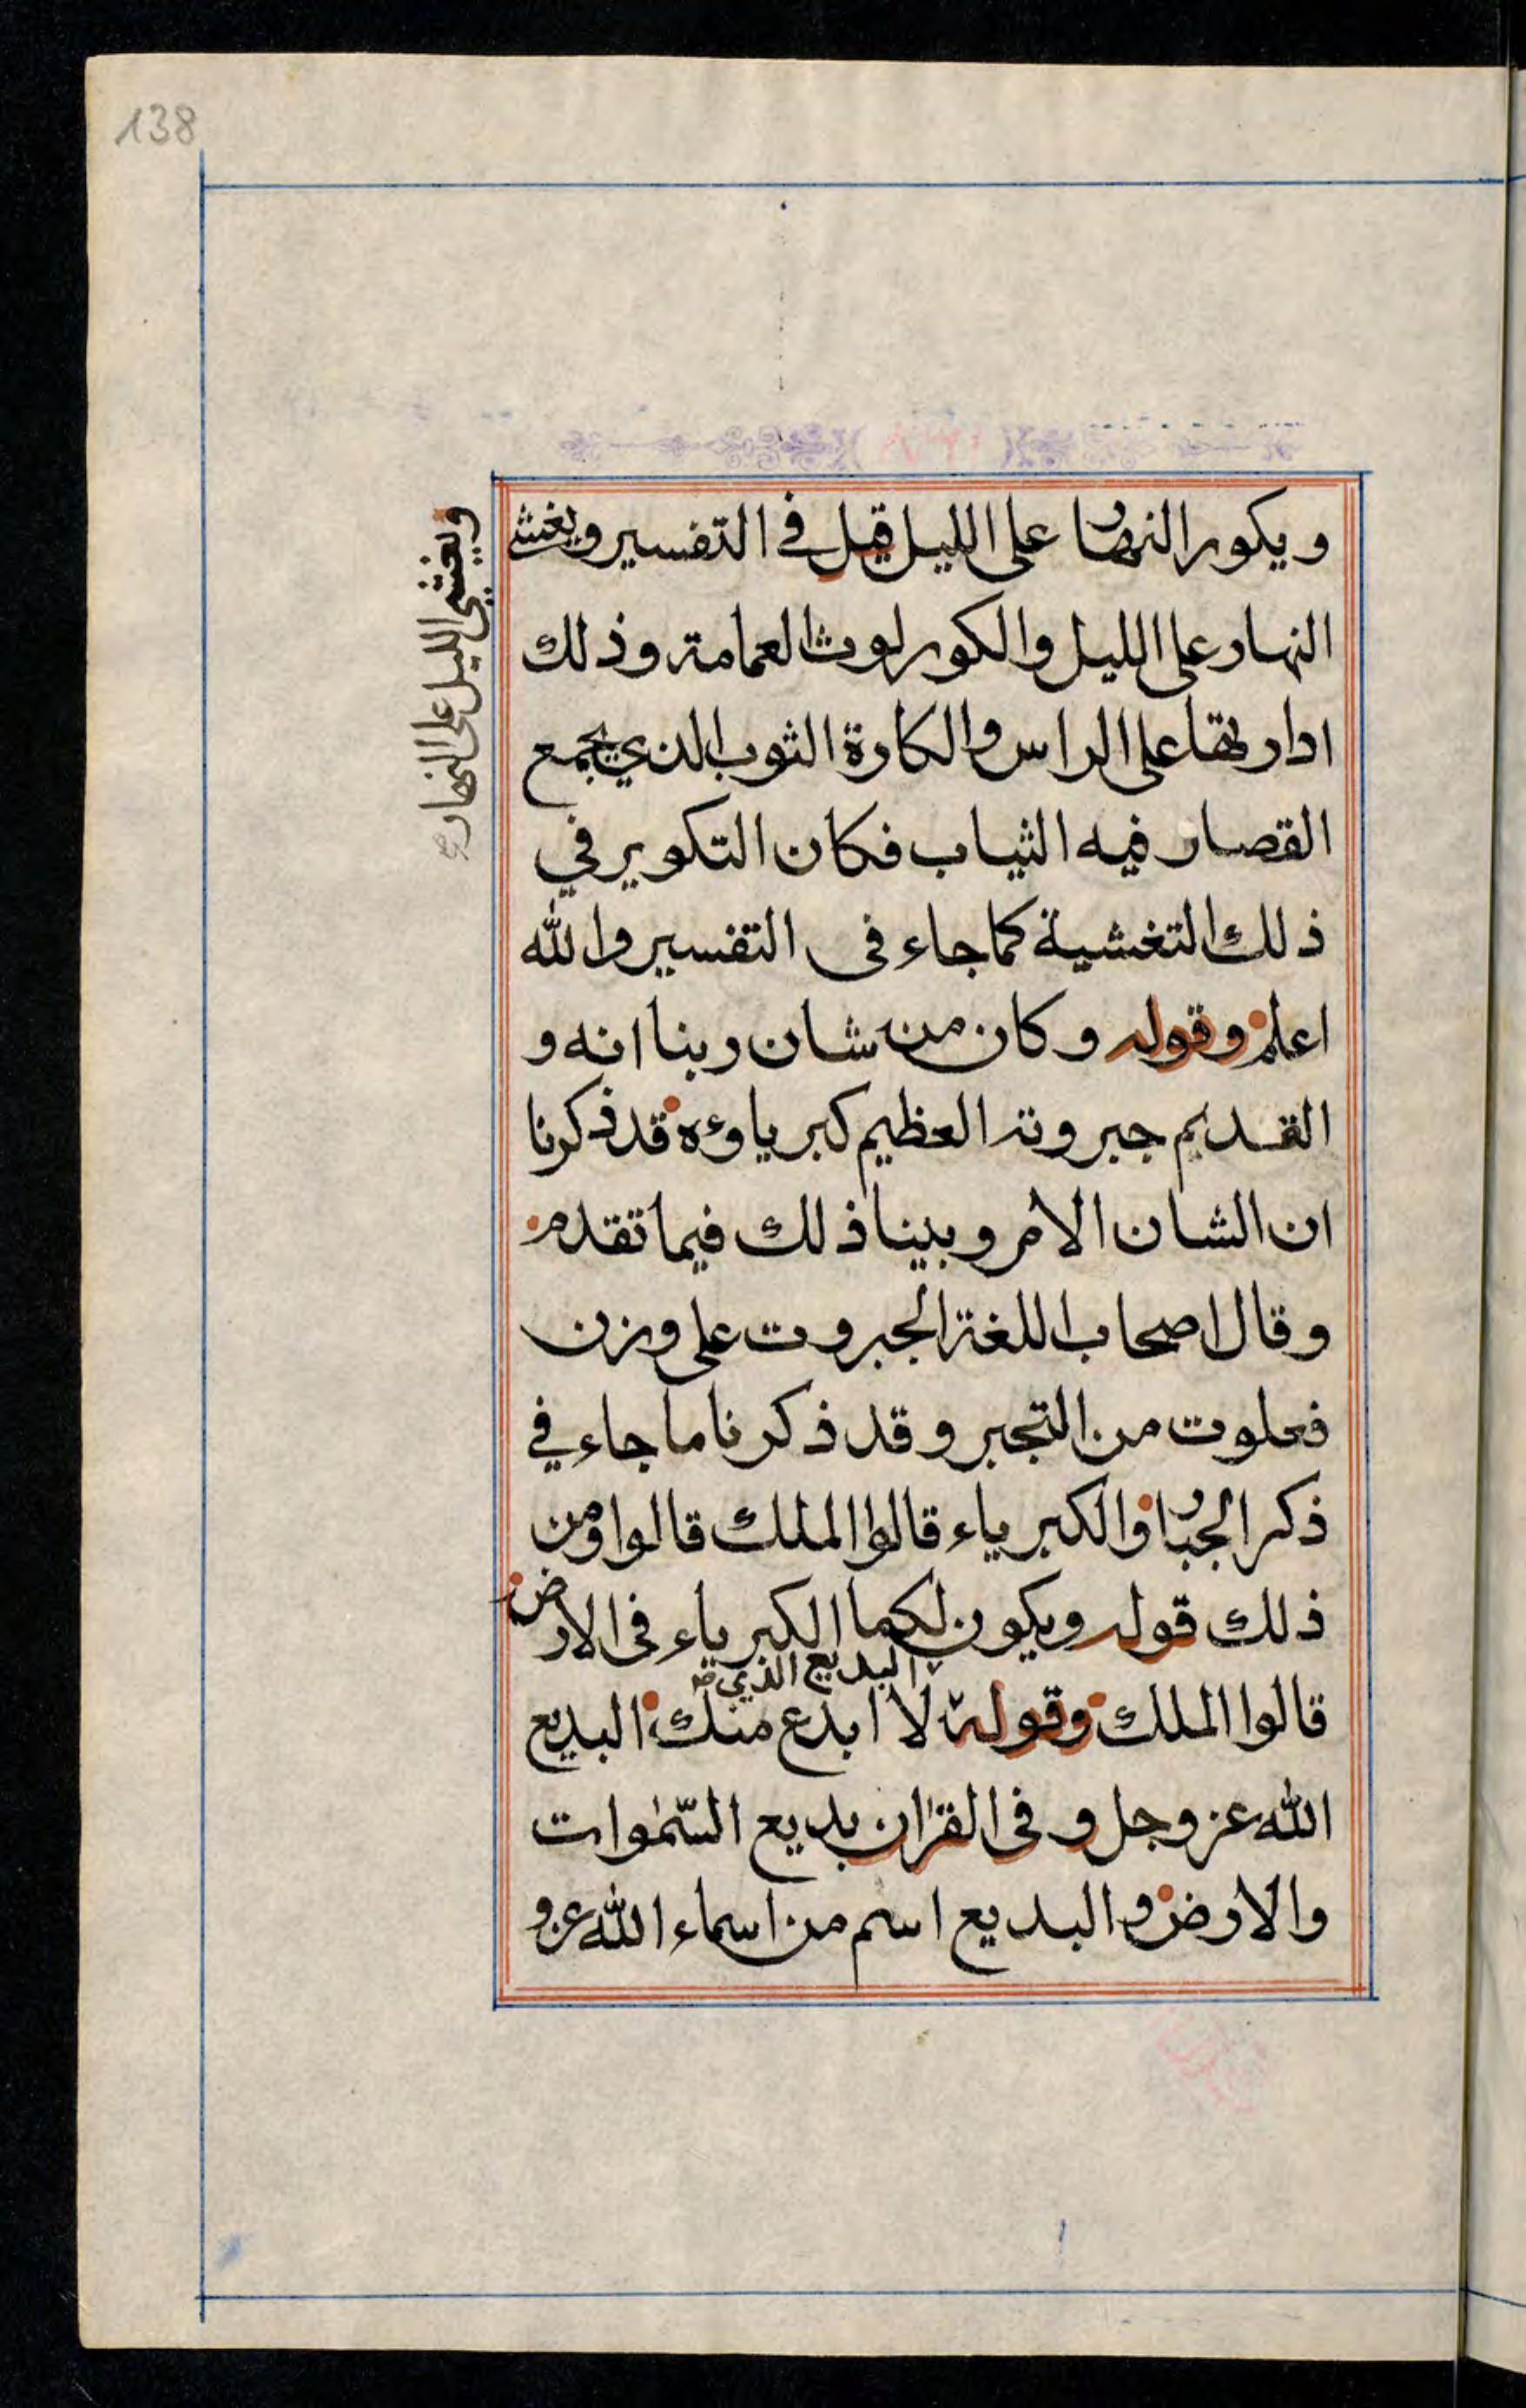 138
ويكور النهار على الليل قيل في التفسير ويغشى
النهار على الليل والكور لوث العمامة وذلك
ادارتها على الراس والكارة الثوب الذي يجمع
القصار فيه الثياب فكان التكوير في
ذلك التغشية كما جاء في التفسير والله
اعلم وقوله وكان من شان ربنا انه و
القديم جبروته العظيم كبرياؤه قد ذكرنا
ان الشان الامر وبينا ذلك فيما تقدم
وقال اصحاب اللغة الجبروت على وزن
فعلوت من التجبر وقد ذكرنا ما جاء في
ذكر الجبار والكبرياء قالوا الملك قالوا ومن
ذلك قوله ويكون لكما الكبرياء في الارض
البديع الذي
قالوا الملك وقوله لا ابدع منك البديع
الله عز وجل وفي القرٰان بديع السّمٰوات
والارض والبديع اسم من اسماء الله عز و
ويغشي الليل على النهار